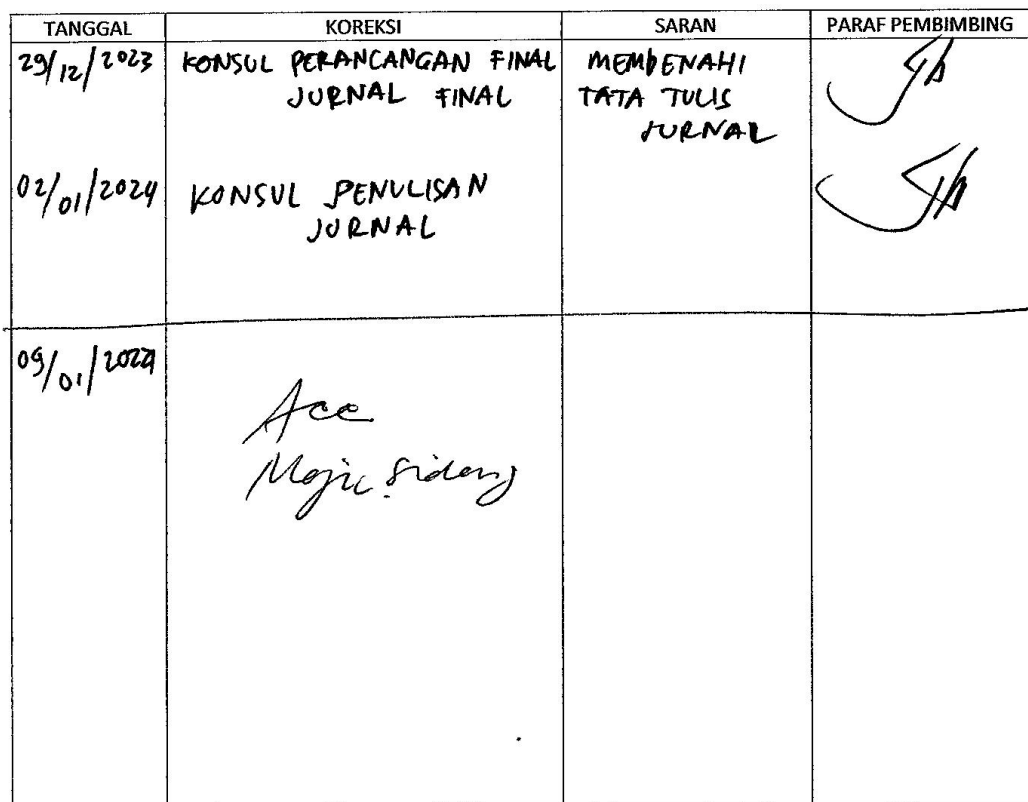 TANGGAL KOREKSI SARAN PARAF PEMBIMBING
29/12/2023 KONSUL PERANCANGAN FINAL MEMBENAHI
JURNAL FINAL TATA TULIS
JURNAL
02/01/2024 KONSUL PENULISAN
JURNAL
09/01/2024
Acc
Maju Sidang